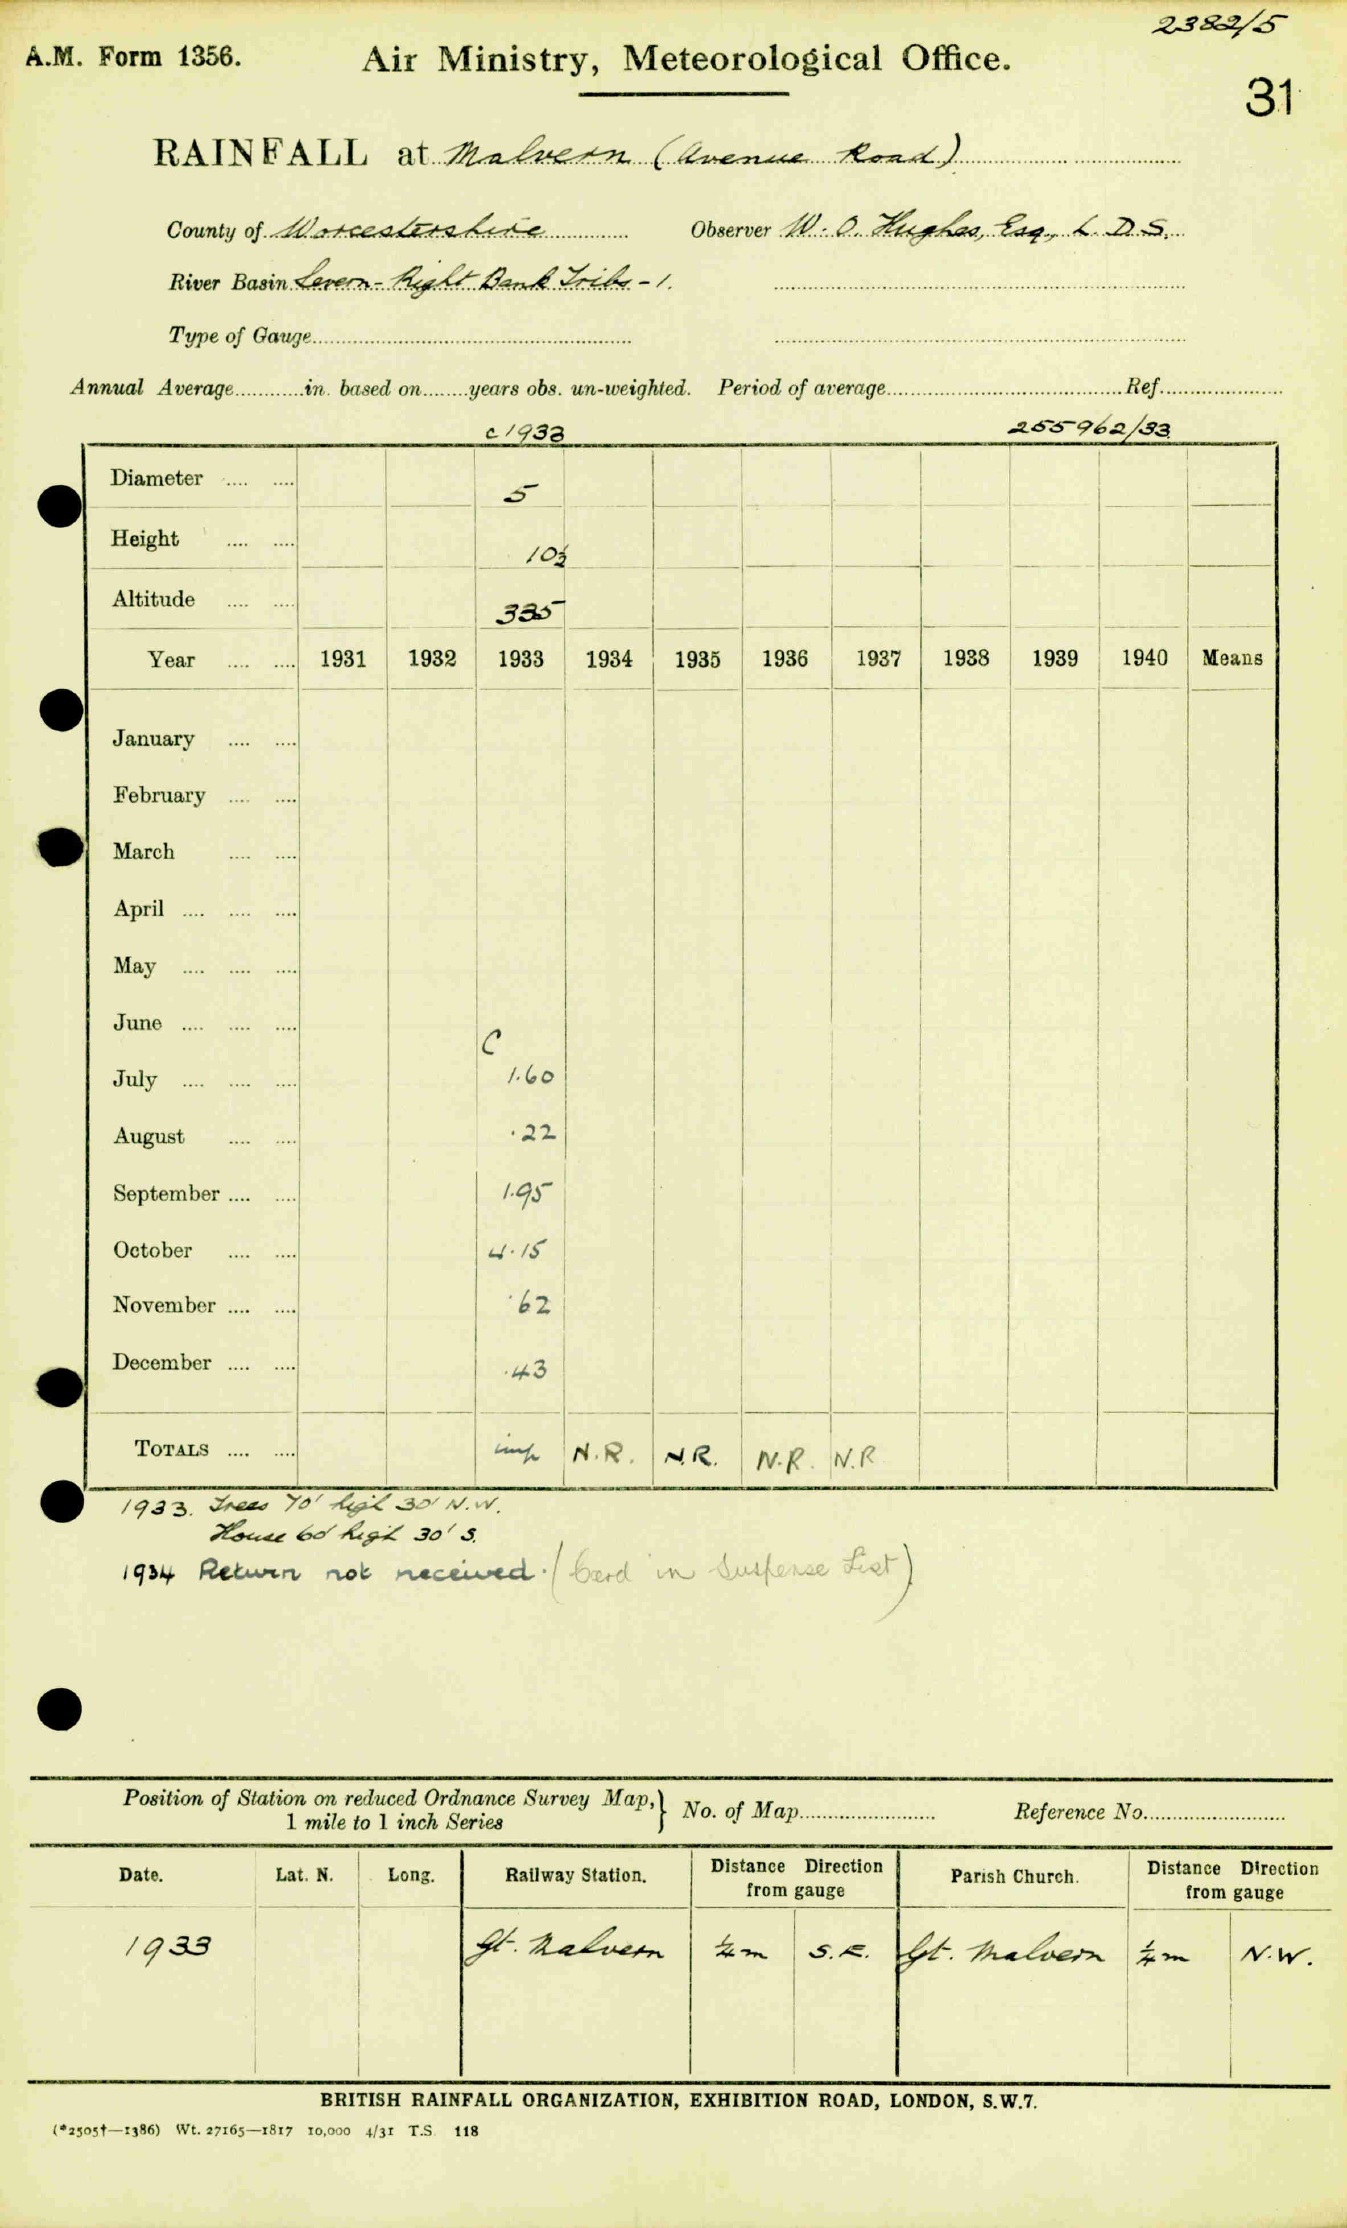 2382/5
A.M. Form 1356. Air Ministry, Meteorological Office.
31
RAINFALL at Malvern (Avenue Road)
County of Worcestershire Observer W. O. Hughes, Esq., L. D. S.
River Basin Severn - Right Bank Tribs - 1.
Type of Gauge
Annual Average in. based on years obs. un-weighted. Period of average Ref.
c 1933 255962/33
Diameter 5
Height 10½
Altitude 335
Year 1931 1932 1933 1934 1935 1936 1937 1938 1939 1940 Means
January
February
March
April
May
June
C
July 1.60
August .22
September 1.95
October 4.15
November .62
December .43
TOTALS imp N.R. N.R. N.R. N.R
1933. Trees 70' high 30' N.W.
House 60' high 30' S.
1934 Return not received. (Card in Suspense List)
Position of Station on reduced Ordnance Survey Map,
1 mile to 1 inch Series
No. of Map Reference No.
Date. Lat. N. Long. Railway Station. Distance Direction from gauge Parish Church. Distance Direction from gauge
1933 Gt. Malvern ¼ m S.E. Gt. Malvern ¼ m N.W.
BRITISH RAINFALL ORGANIZATION, EXHIBITION ROAD, LONDON, S.W.7.
(*2505†—1386) Wt. 27165—1817 10,000 4/31 T.S. 118